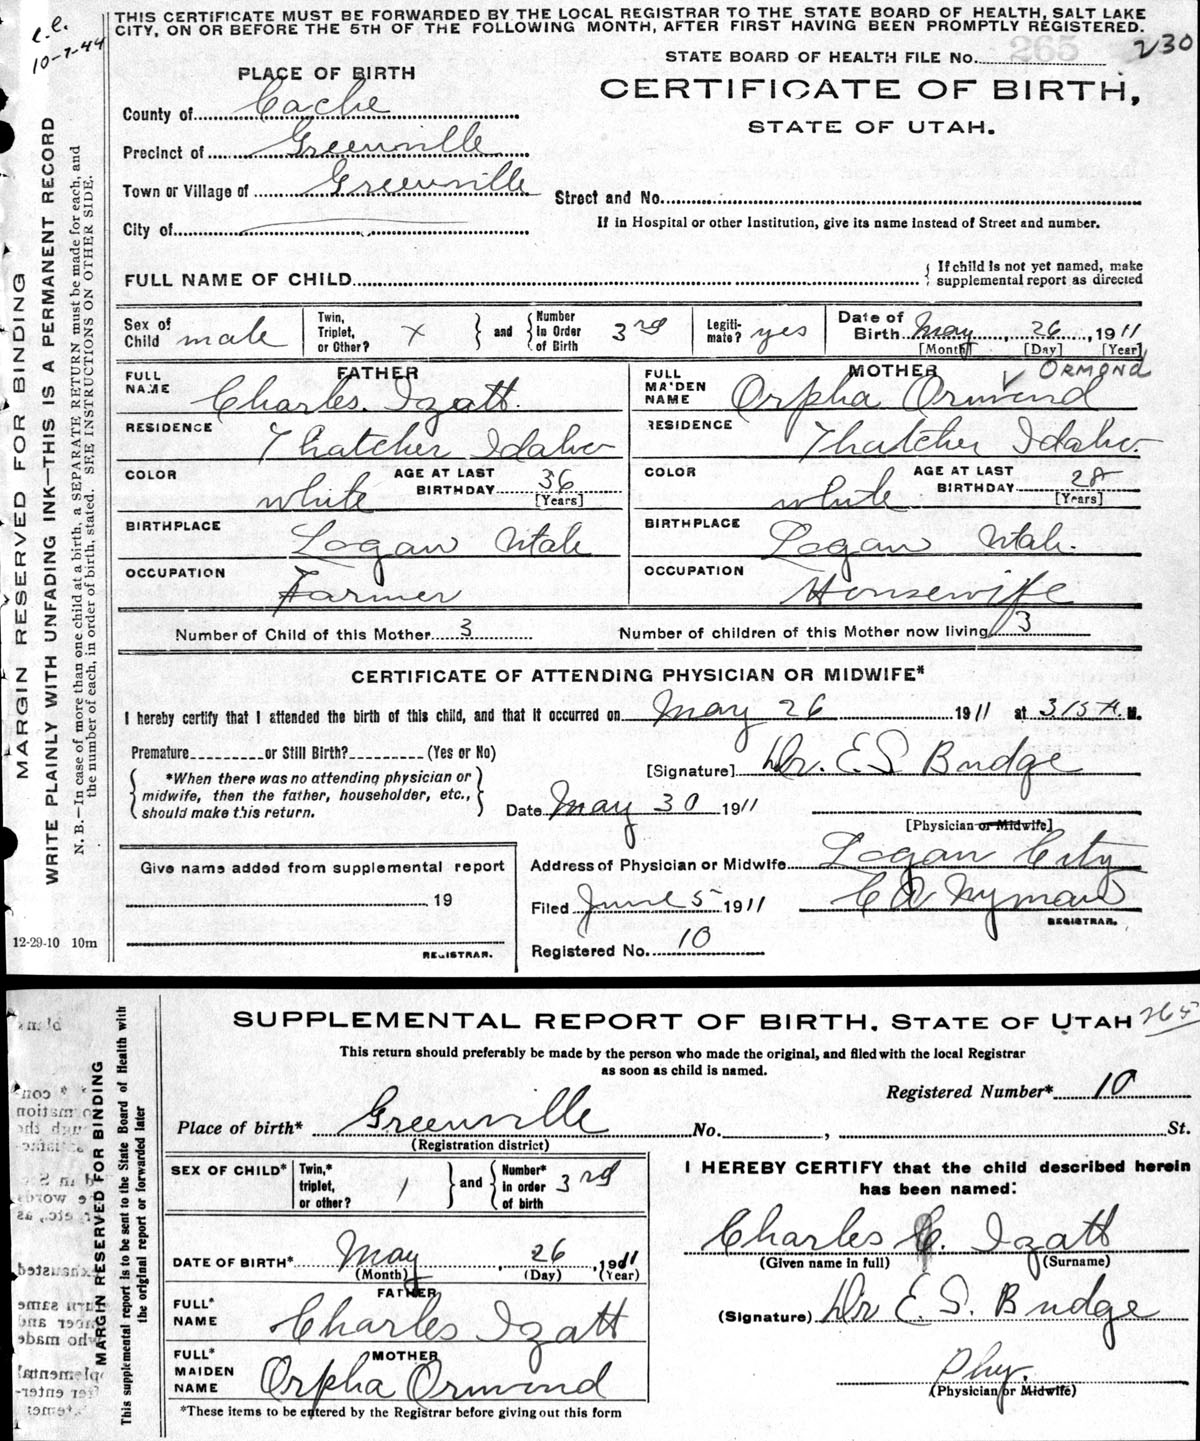 c.c.
10-7-44
THIS CERTIFICATE MUST BE FORWARDED BY THE LOCAL REGISTRAR TO THE STATE BOARD OF HEALTH, SALT LAKE
CITY, ON OR BEFORE THE 5TH OF THE FOLLOWING MONTH, AFTER FIRST HAVING BEEN PROMPTLY REGISTERED.
STATE BOARD OF HEALTH FILE No. 265 230
PLACE OF BIRTH
CERTIFICATE OF BIRTH,
STATE OF UTAH.
County of Cache
Precinct of Greenville
Town or Village of Greenville
Street and No.
City of
If in Hospital or other Institution, give its name instead of Street and number.
FULL NAME OF CHILD { If child is not yet named, make
supplemental report as directed
Sex of Child male
Twin, Triplet, or Other? X } and { Number in Order of Birth 3rd
Legiti-mate? yes
Date of Birth May, 26, 1911
[Month] [Day] [Year]
FATHER
FULL NAME Charles. Izatt.
RESIDENCE Thatcher Idaho
COLOR white AGE AT LAST BIRTHDAY 36 [Years]
BIRTHPLACE Logan Utah
OCCUPATION Farmer
MOTHER ✓ ORMOND
FULL MAIDEN NAME Orpha Ormond
RESIDENCE Thatcher Idaho.
COLOR white AGE AT LAST BIRTHDAY 28 [Years]
BIRTHPLACE Logan Utah.
OCCUPATION Housewife
Number of Child of this Mother 3 Number of children of this Mother now living 3
CERTIFICATE OF ATTENDING PHYSICIAN OR MIDWIFE*
I hereby certify that I attended the birth of this child, and that it occurred on May 26 1911 at 315 A. M.
Premature or Still Birth? (Yes or No)
{ *When there was no attending physician or
midwife, then the father, householder, etc.,
should make this return. }
[Signature] Dr. E. S. Budge
Date May 30 1911
[Physician or Midwife]
Give name added from supplemental report
19
REGISTRAR.
Address of Physician or Midwife Logan City
Filed June 5 1911 C A Nyman
REGISTRAR.
Registered No. 10
MARGIN RESERVED FOR BINDING
WRITE PLAINLY WITH UNFADING INK—THIS IS A PERMANENT RECORD
N. B.—In case of more than one child at a birth, a SEPARATE RETURN must be made for each, and
the number of each, in order of birth, stated. SEE INSTRUCTIONS ON OTHER SIDE.
12-29-10 10m
SUPPLEMENTAL REPORT OF BIRTH, STATE OF UTAH 265
This return should preferably be made by the person who made the original, and filed with the local Registrar
as soon as child is named.
Registered Number* 10
Place of birth* Greenville No. , St.
(Registration district)
SEX OF CHILD*
Twin,* triplet, or other? / } and { Number* in order of birth 3rd
DATE OF BIRTH* May, 26, 1911
(Month) (Day) (Year)
FATHER
FULL* NAME Charles Izatt
MOTHER
FULL* MAIDEN NAME Orpha Ormond
*These items to be entered by the Registrar before giving out this form
I HEREBY CERTIFY that the child described herein
has been named:
Charles C. Izatt
(Given name in full) (Surname)
(Signature) Dr E. S. Budge
Phy.
(Physician or Midwife)
MARGIN RESERVED FOR BINDING
This supplemental report is to be sent to the State Board of Health with
the original report or forwarded later